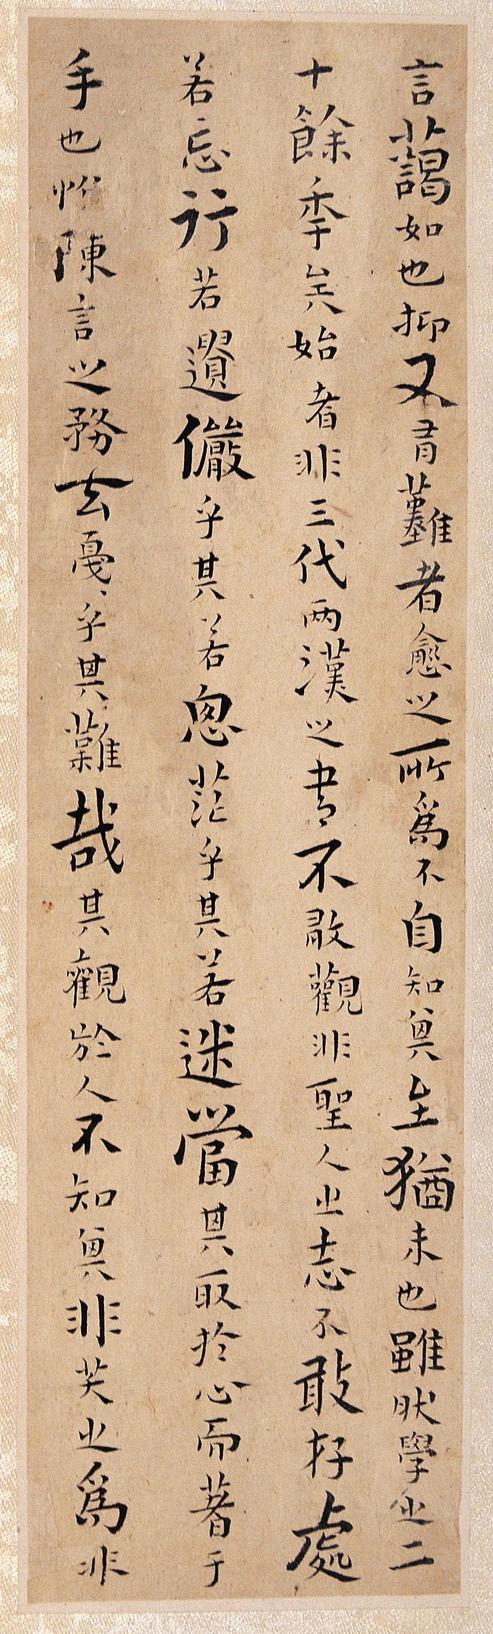 言藹如也抑又有難者愈之所爲不自知其至猶未也雖肰學之二
十餘季矣始者非三代兩漢之書不敢觀非聖人之志不敢存處
若忘行若遺儼乎其若思茫乎其若迷當其取於心而著于
手也惟陳言之務去戛〻乎其難哉其觀於人不知其非笑之爲非